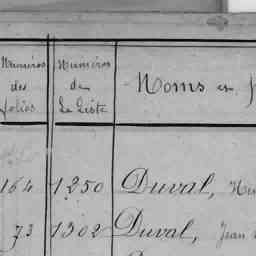 Numéros des folios
Numéros de la Liste
Noms et
164 1250 Duval,
73 1302 Duval, Jean